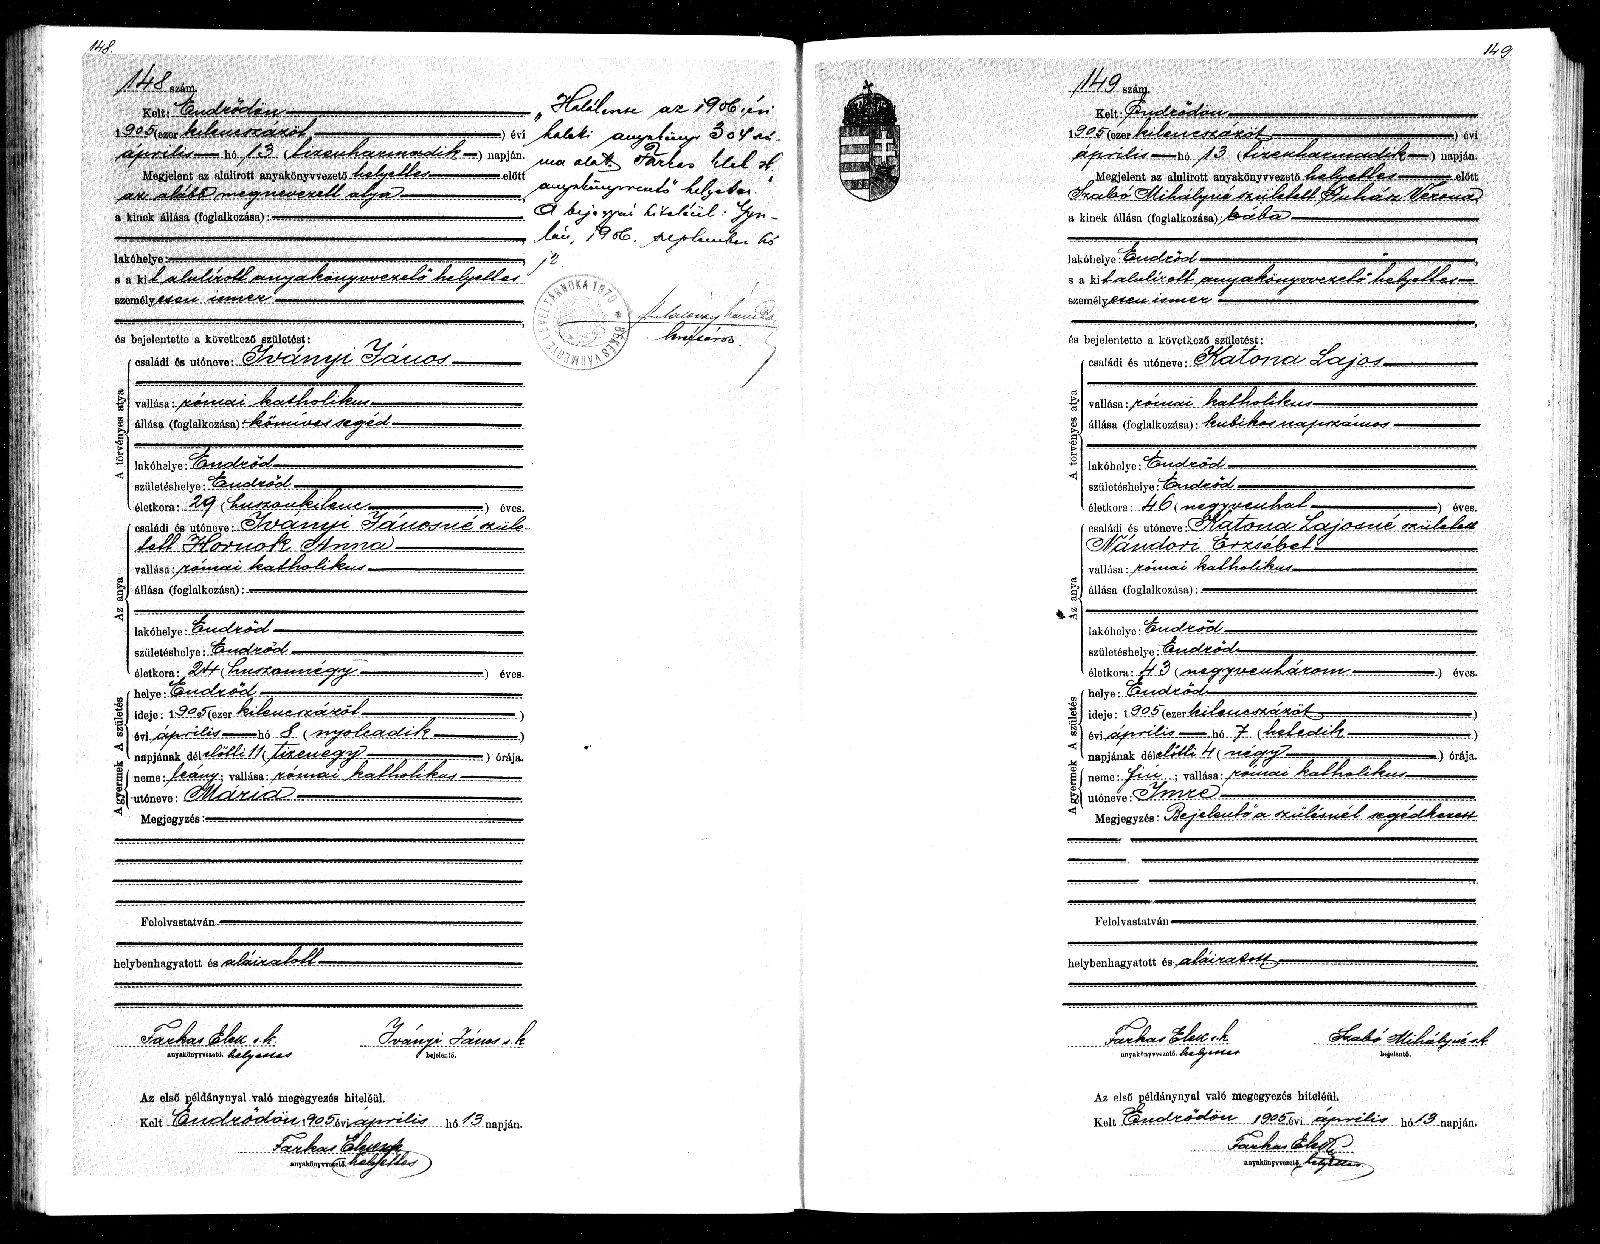 148.
148 szám.
Kelt: Endrődön
1905 (ezer kilencszázöt) évi
április hó 13 (tizenharmadik) napján.
Megjelent az alulirott anyakönyvvezető helyettes előtt
az alább megnevezett atya
a kinek állása (foglalkozása):
lakóhelye:
s a kit alulírott anyakönyvvezető helyettes
személyesen ismer
és bejelentette a következő születést:
A törvényes atya
családi és utóneve: Iványi János
vallása: római katholikus
állása (foglalkozása): kőmives segéd
lakóhelye: Endrőd
születéshelye: Endrőd
életkora: 29 (huszonkilenc) éves.
Az anya
családi és utóneve: Iványi Jánosné szüle-
tett Hornok Anna
vallása: római katholikus
állása (foglalkozása):
lakóhelye: Endrőd
születéshelye: Endrőd
életkora: 24 (huszonnégy) éves.
A születés
helye: Endrőd
ideje: 1905 (ezer kilencszázöt)
évi április hó 8 (nyolcadik)
napjának délelőtti 11 (tizenegy) órája.
A gyermek
neme: leány; vallása: római katholikus
utóneve: Mária
Megjegyzés:
Felolvastatván
helybenhagyatott és aláiratott
Farkas Elek s.k. Iványi János s.k.
anyakönyvvezető. helyettes bejelentő.
Az első példánynyal való megegyezés hiteléül.
Kelt Endrődön 1905 évi április hó 13 napján.
Farkas Elek
anyakönyvvezető. helyettes
„Halálesete az 1906. évi
halotti anyakönyv 304 szá-
ma alatt Farkas Elek sk.
anyakönyvvezető helyettes"
A bejegyzés hiteléül: Gyu-
lán, 1906. szeptember hó
BÉKÉS VÁRMEGYE LEVÉLTÁRNOKA 1870
149
149 szám.
Kelt: Endrődön
1905 (ezer kilencszázöt) évi
április hó 13 (tizenharmadik) napján.
Megjelent az alulirott anyakönyvvezető helyettes előtt
Szabó Mihályné született Juhász Terona
a kinek állása (foglalkozása): bába
lakóhelye: Endrőd
s a kit alulírott anyakönyvvezető helyettes
személyesen ismer
és bejelentette a következő születést:
A törvényes atya
családi és utóneve: Katona Lajos
vallása: római katholikus
állása (foglalkozása): kubikos napszámos
lakóhelye: Endrőd
születéshelye: Endrőd
életkora: 46 (negyvenhat) éves.
Az anya
családi és utóneve: Katona Lajosné született
Nándori Erzsébet
vallása: római katholikus
állása (foglalkozása):
lakóhelye: Endrőd
születéshelye: Endrőd
életkora: 43 (negyvenhárom) éves.
A születés
helye: Endrőd
ideje: 1905 (ezer kilencszázöt)
évi április hó 7 (hetedik)
napjának délelőtti 4 (négy) órája.
A gyermek
neme: fiu; vallása: római katholikus
utóneve: Imre
Megjegyzés: Bejelentő a szülésnél segédkezett
Felolvastatván
helybenhagyatott és aláiratott
Farkas Elek s.k. Szabó Mihályné s.k.
anyakönyvvezető. helyettes bejelentő.
Az első példánynyal való megegyezés hiteléül.
Kelt Endrődön 1905 évi április hó 13 napján.
Farkas Elek
anyakönyvvezető. helyettes